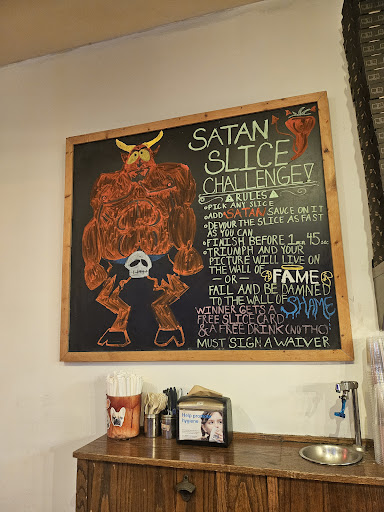 SATAN
SLICE
CHALLENGE!
RULES
PICK ANY SLICE
ADD SATAN SAUCE ON IT
DEVOUR THE SLICE AS FAST
AS YOU CAN
FINISH BEFORE 1 min 45 sec
TRIUMPH AND YOUR
PICTURE WILL LIVE ON
THE WALL OF
FAME
— OR —
FAIL AND BE DAMNED
TO THE WALL OF SHAME
WINNER GETS A
FREE SLICE CARD
& A FREE DRINK (NO THC)
MUST SIGN A WAIVER
Help
hygiene